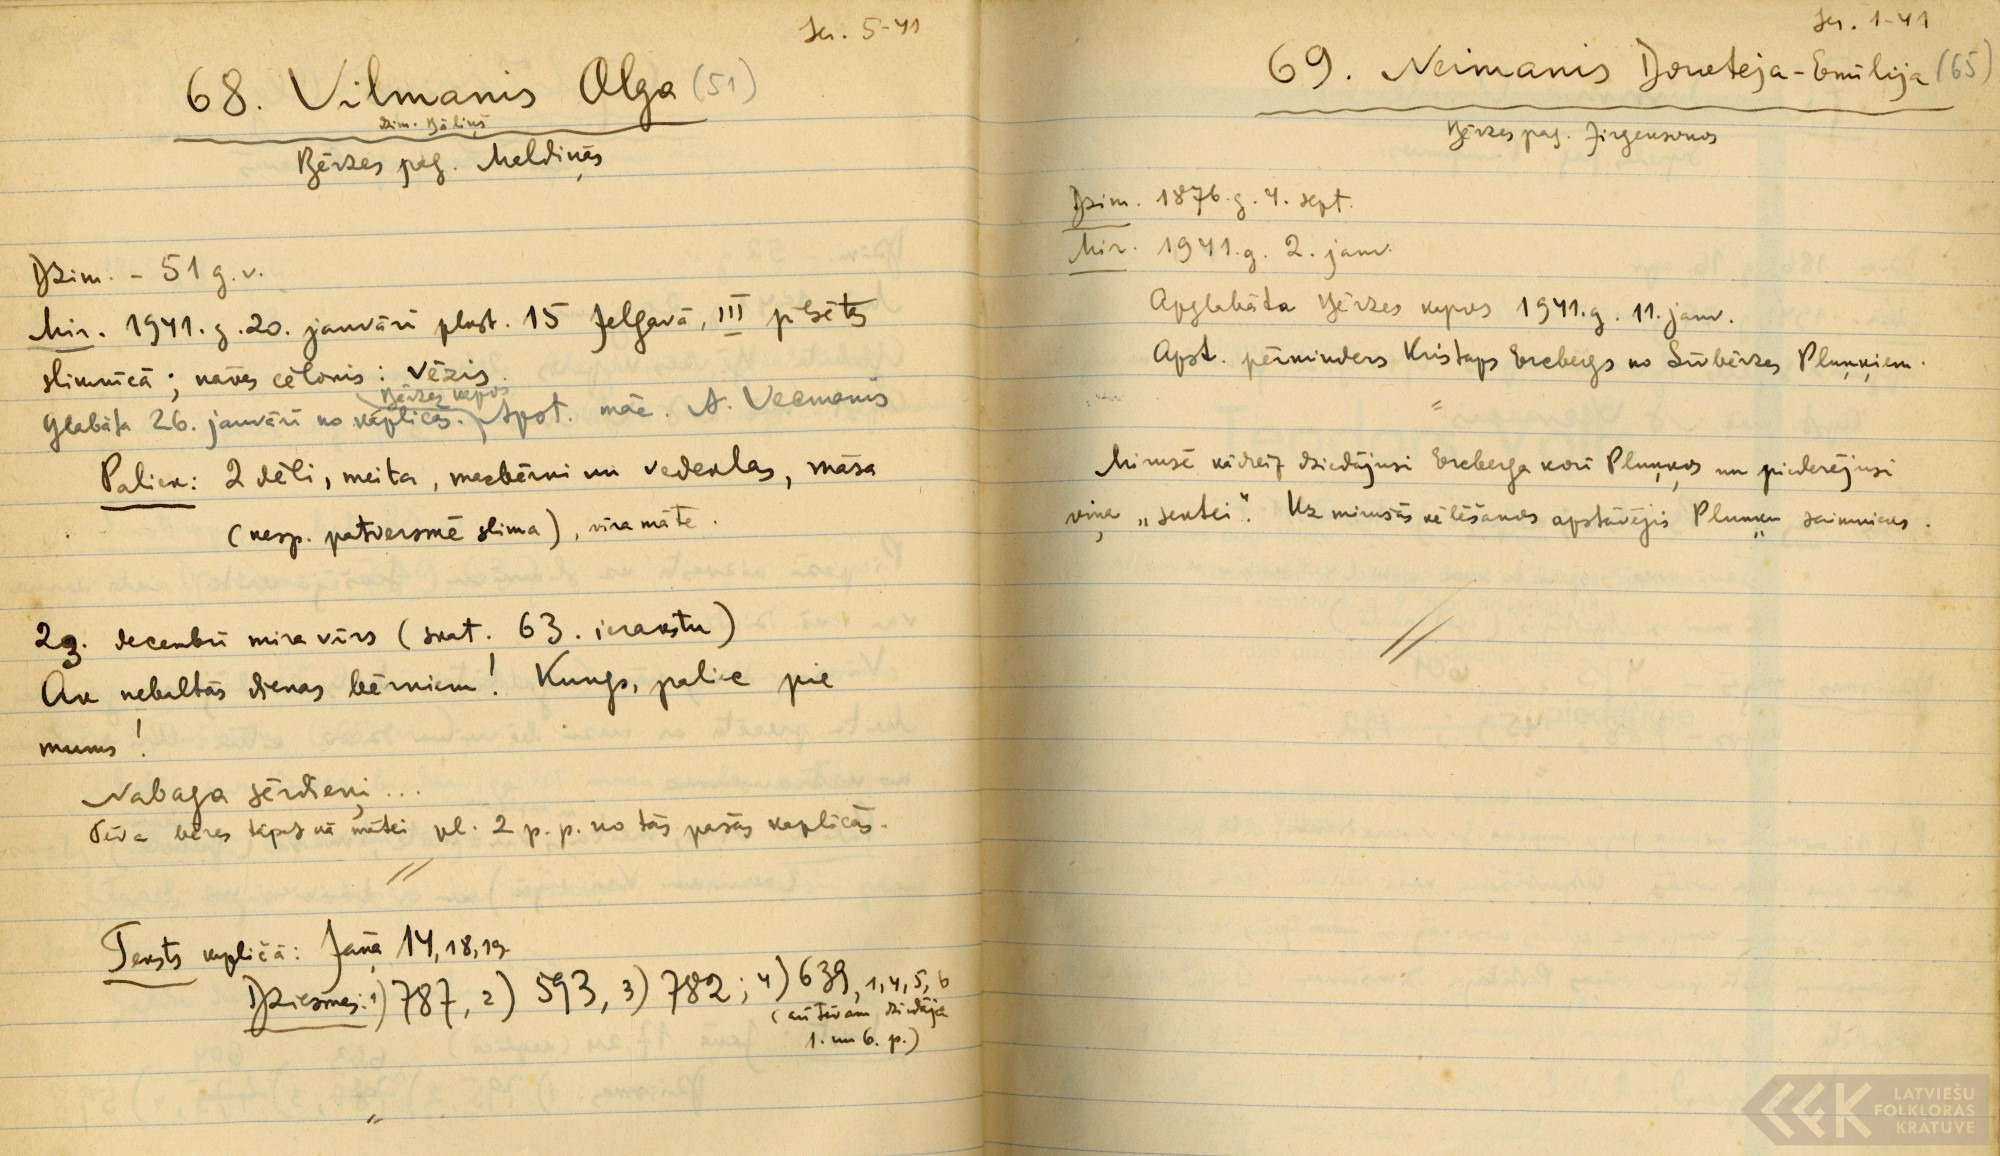 Ser. 5-41
68. Vilmanis Olga (51)
dzim. Bāliņš
Bērzes pag. Meldiņās
Dzim. - 51 g. v.
Mir. 1941. g. 20. janvārī plkst. 15 Jelgavā, III pilsētas
slimnīcā; nāves cēlonis: vēzis.
Bērzes kapos
Glabāta 26. janvārī no kapličas. Apst. māc. A. Vecmanis
Paliek: 2 dēli, meita, mazbērni un vedeklas, māsa
(nesp. patversmē slima), vīra māte.
29. decembrī mira vīrs (skat. 63. ierakstu)
Ak nebaltās dienas bērniem! Kungs, paliec pie
mums!
Nabaga sērdieņi...
Tēva bēres tāpat kā mātei pl. 2 p. p. no tās pašas kapličas.
Teksts kapličā: Jāņa 14, 18, 19
Dziesmas: 1) 787, 2) 593, 3) 782; 4) 639, 1, 4, 5, 6
(arī tēvam dziedāja
1. un 6. p.)
Ser. 1-41
69. Neimanis Doroteja-Emīlija (65)
Bērzes pag. Jirgensonos
Dzim. 1876. g. 4. sept.
Mir. 1941. g. 2. janv.
Apglabāta Bērzes kapos 1941. g. 11. janv.
Apst. pērminders Kristaps Ercbergs no Līvbērzes Pluņķiem.
Mirusē kādreiz dziedājusi Ercberga korī Pluņķos un piederējusi
viņa „sektei". Uz mirušās vēlēšanos apstāvējis Pluņķu saimnieks.
LATVIEŠU
FOLKLORAS
KRĀTUVE